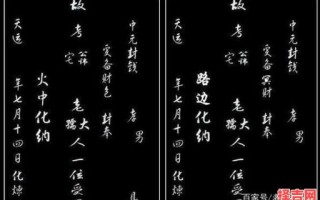 中元封钱 孝男
爱备冥财 封奉
故考 公讳 老大人一位受
宅 孺
路边化纳
天运 年七月十四日化炼
中元封钱 孝男
爱备财包 封奉
故考 公讳 老大人一位受
宅 孺
火中化纳
天运 年七月十四日化炼
百家号
择吉网